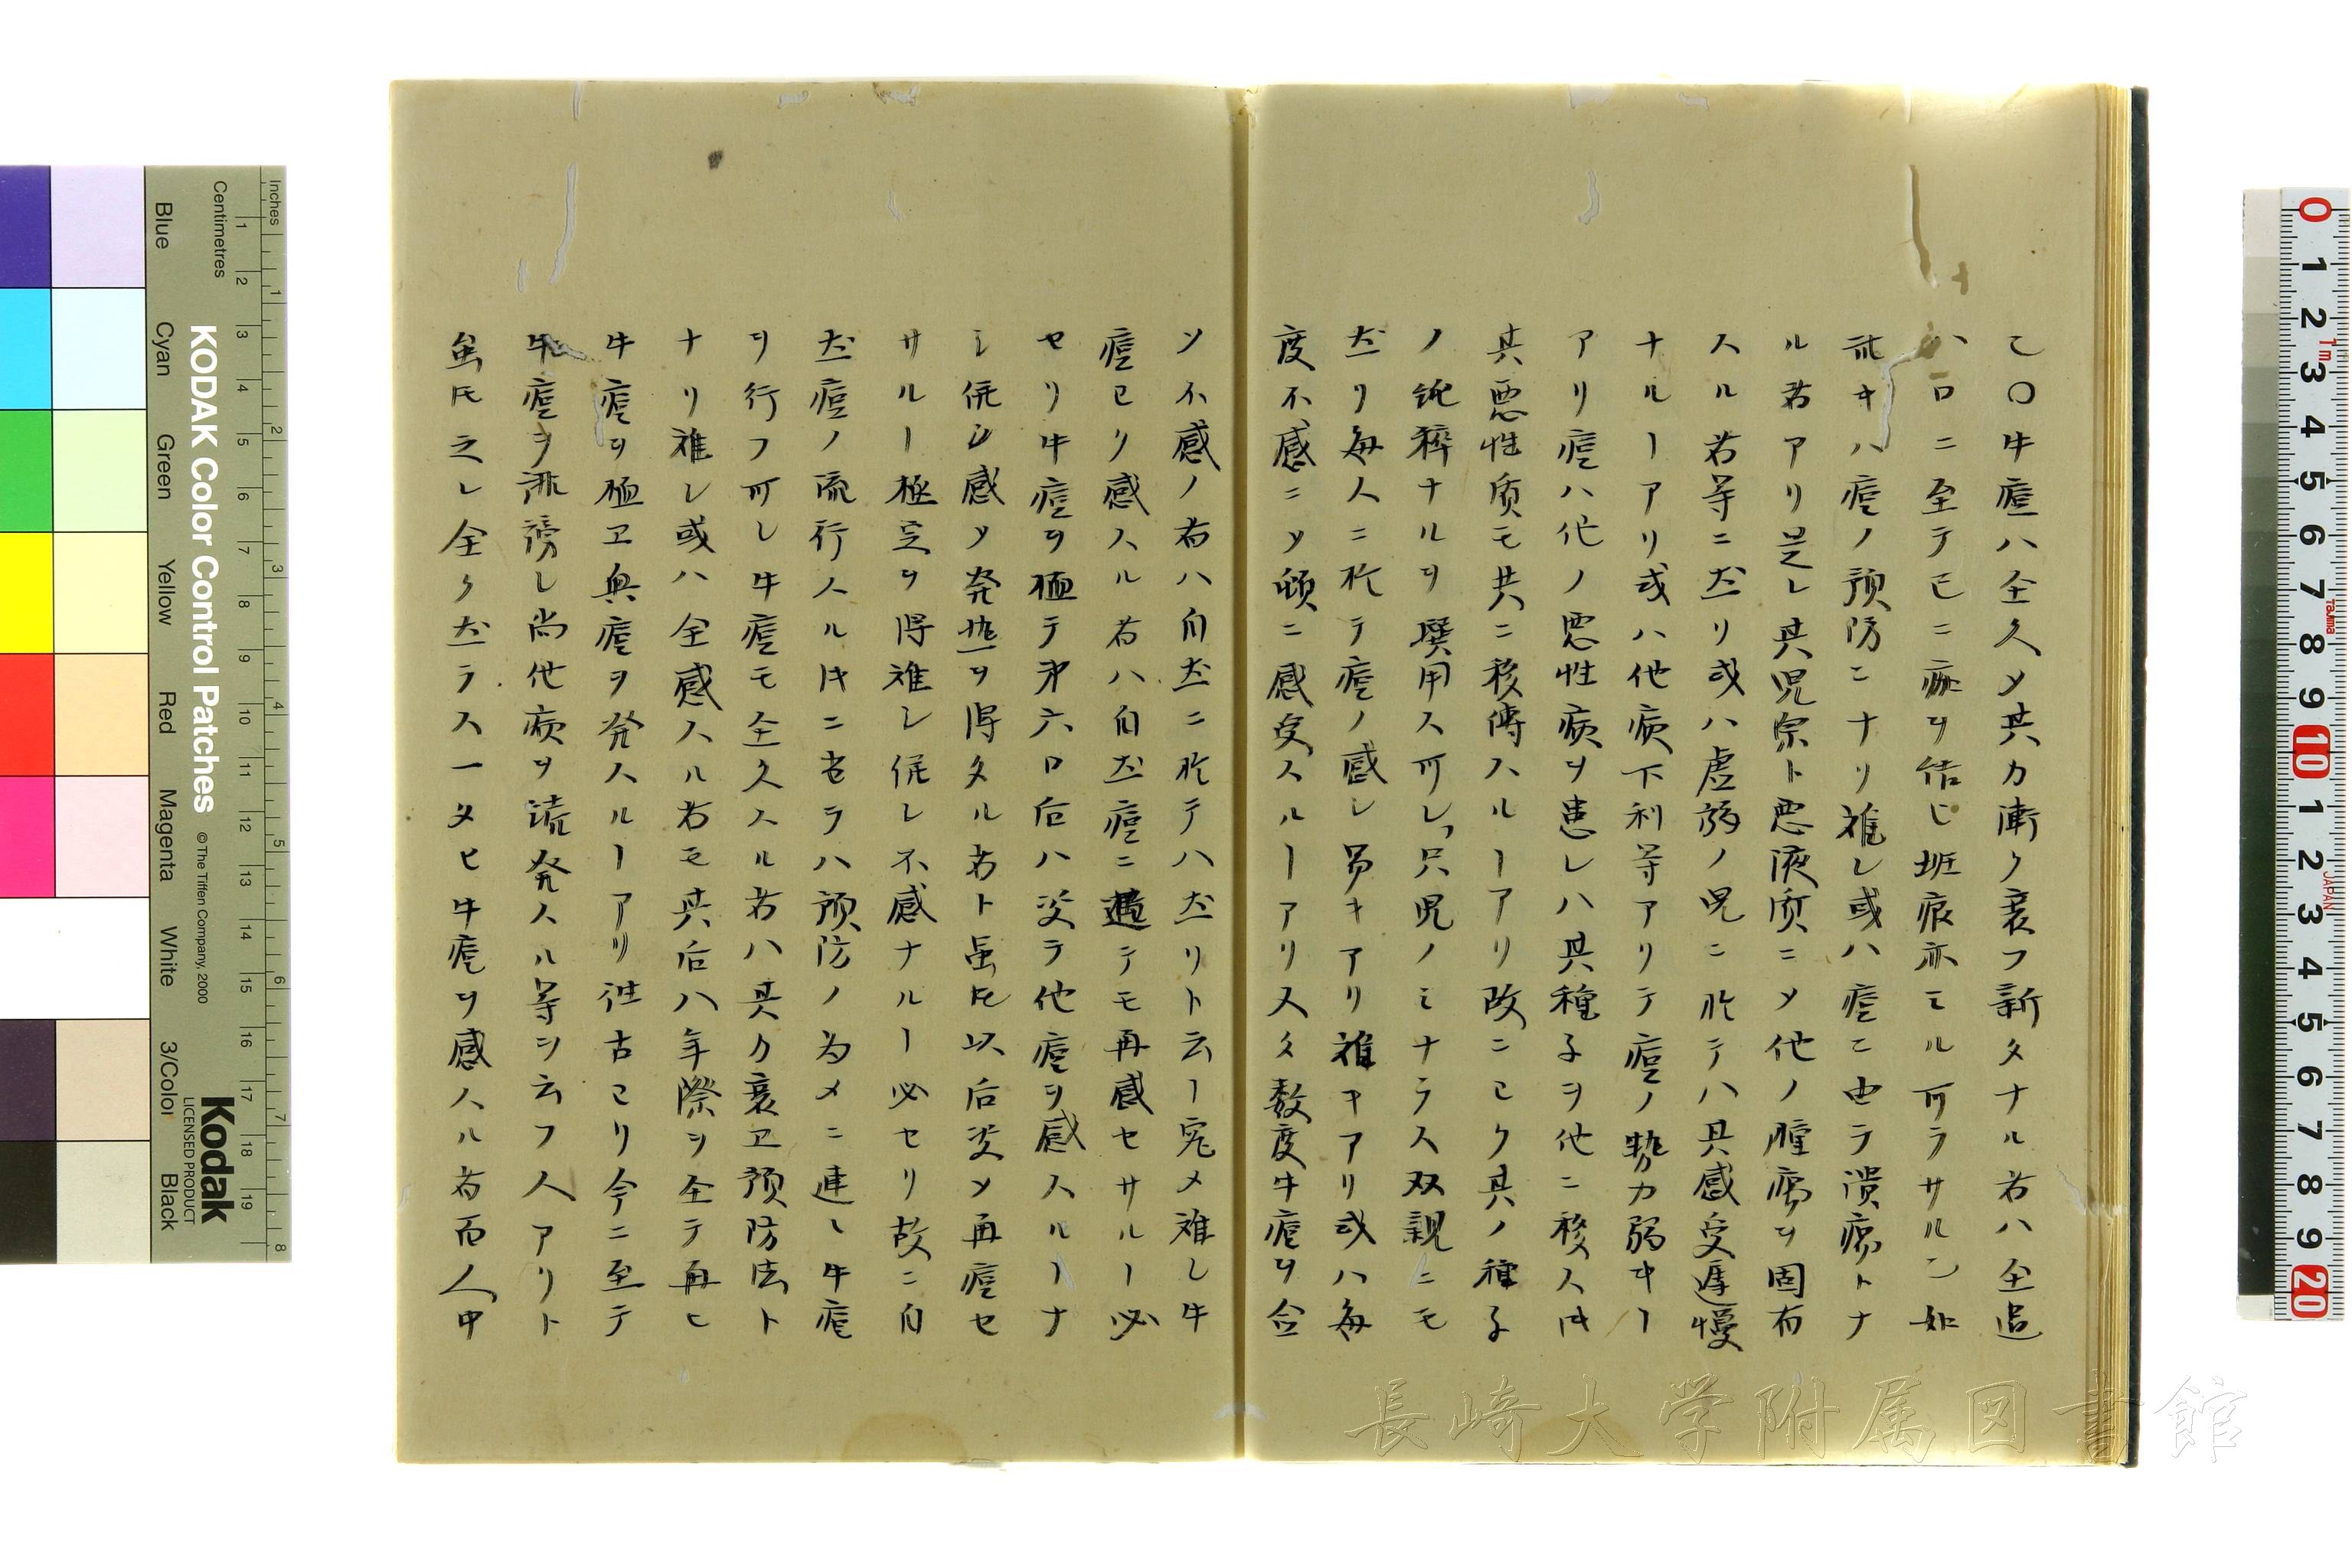 乙〇牛痘ハ全久〆其カ漸ク衰フ新タナル者ハ全追
八日ニ至テ已ニ痂ヲ結ヒ斑痕亦ミル可ラサル如
キハ痘ノ預防ニナリ難シ或ハ痘ニ由テ潰瘍トナ
ル者アリ是レ其児素ト悪液质ニ〆他ノ腫瘍ヲ固有
スル者等ニ在リ或ハ虚弱ノ児ニ於テハ其感受遅慢
ナルヿアリ或ハ他病下利等アリテ痘ノ勢カ弱キヿ
アリ痘ハ他ノ悪性病ヲ患レハ其種子ヲ他ニ移ス片
其悪性质モ共ニ移傳スルヿアリ故ニヨク其ノ種子
ノ純粋ナルヲ撰用ス可シ只児ノミナラス双親ニモ
在リ毎人ニ於テ痘ノ感シ易キアリ難キアリ或ハ毎
度不感ニ〆頓ニ感受スルヿアリ又タ数度牛痘ヲ合
ソ不感ノ者ハ自在ニ於テハ在リト云ヿ究メ難シ牛
痘ヨク感スル者ハ自在痘ニ遭テモ再感セサルヿ必
セリ牛痘ヲ種テ第六日后ハ决テ他痘ヲ感スルヿナ
シ併シ感〆発热ヲ得タル者ト虽𪜈以后决〆再痘セ
サルヿ極定ヲ得難シ併シ不感ナルヿ必セリ故ニ自
在痘ノ流行スル片ニ当ラハ預防ノ為メニ速ニ牛痘
ヲ行フ可シ牛痘モ全久スル者ハ其カ衰ヱ預防法ト
ナリ難シ或ハ全感スル者モ其后八年際ヲ全テ再ヒ
牛痘ヲ種ヱ與痘ヲ発スルヿアリ往古ヨリ今ニ至テ
牛痘ヲ誹謗シ尚他病ヲ誘発スル等ヲ云フ人アリト
虽𪜈之レ全ク在ラス一タヒ牛痘ヲ感スル者百人中
KODAK Color Control Patches
© The Tiffen Company, 2000
Kodak
LICENSED PRODUCT
Inches
Centimetres
Blue
Cyan
Green
Yellow
Red
Magenta
White
3/Color
Black
長崎大学附属図書館